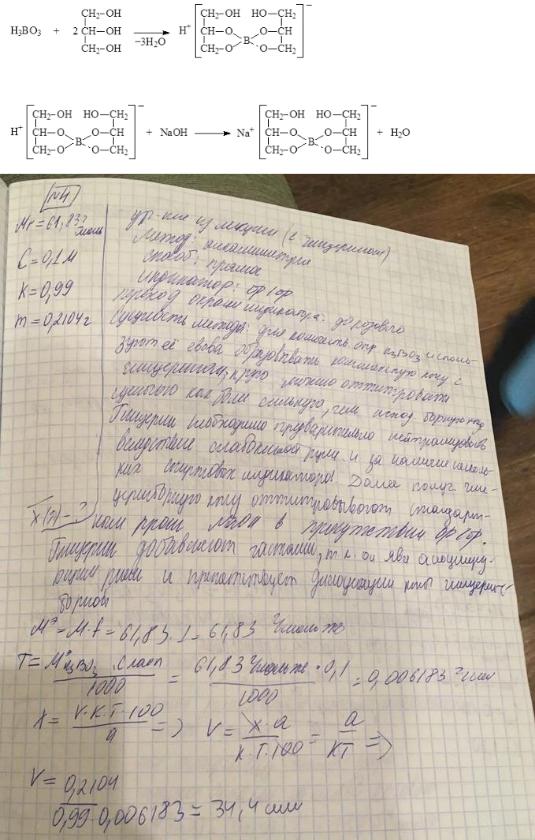 H₃BO₃ + 2 CH₂–OH CH–OH CH₂–OH −3H₂O H⁺ [CH₂–OH HO–CH₂ CH–O O–CH B CH₂–O O–CH₂]⁻
H⁺ [CH₂–OH HO–CH₂ CH–O O–CH B CH₂–O O–CH₂]⁻ + NaOH Na⁺ [CH₂–OH HO–CH₂ CH–O O–CH B CH₂–O O–CH₂]⁻ + H₂O
N4
Mr = 61,83 г/моль
C = 0,1 М
K = 0,99
m = 0,2104 г
X(?) - ?
ур-ние из лекции (с глицерином)
Метод: алкалиметрия
способ: прямой
индикатор: ф/ф
переход окраски индикатора: до розового
Сущность метода: для колич. опр. H₃BO₃ исполь-
зуют её св-ва образовывать комплексную к-ту с
глицерином, можно оттитровать
как более сильную, чем исход. борную к-ту
Глицерин необходимо предварительно нейтрализовать
вследствие
индикатора. Далее получ. гли-
церинборную к-ту оттитровывают стандарт-
ным р-ром NaOH в присутствии ф/ф.
Глицерин добавляют частями, т.к. он
и препятствует диссоциации к-ты глицерин-
борной
Mэ = M · f = 61,83 · 1 = 61,83 г/моль
T = Mэ H₃BO₃ · C / 1000 = 61,83 г/моль · 0,1 / 1000 = 0,006183 г/мл
X = V·K·T·100 / a => V = X·a / K·T·100 = a / KT =>
V = 0,2104 / 0,99·0,006183 = 34,4 мл